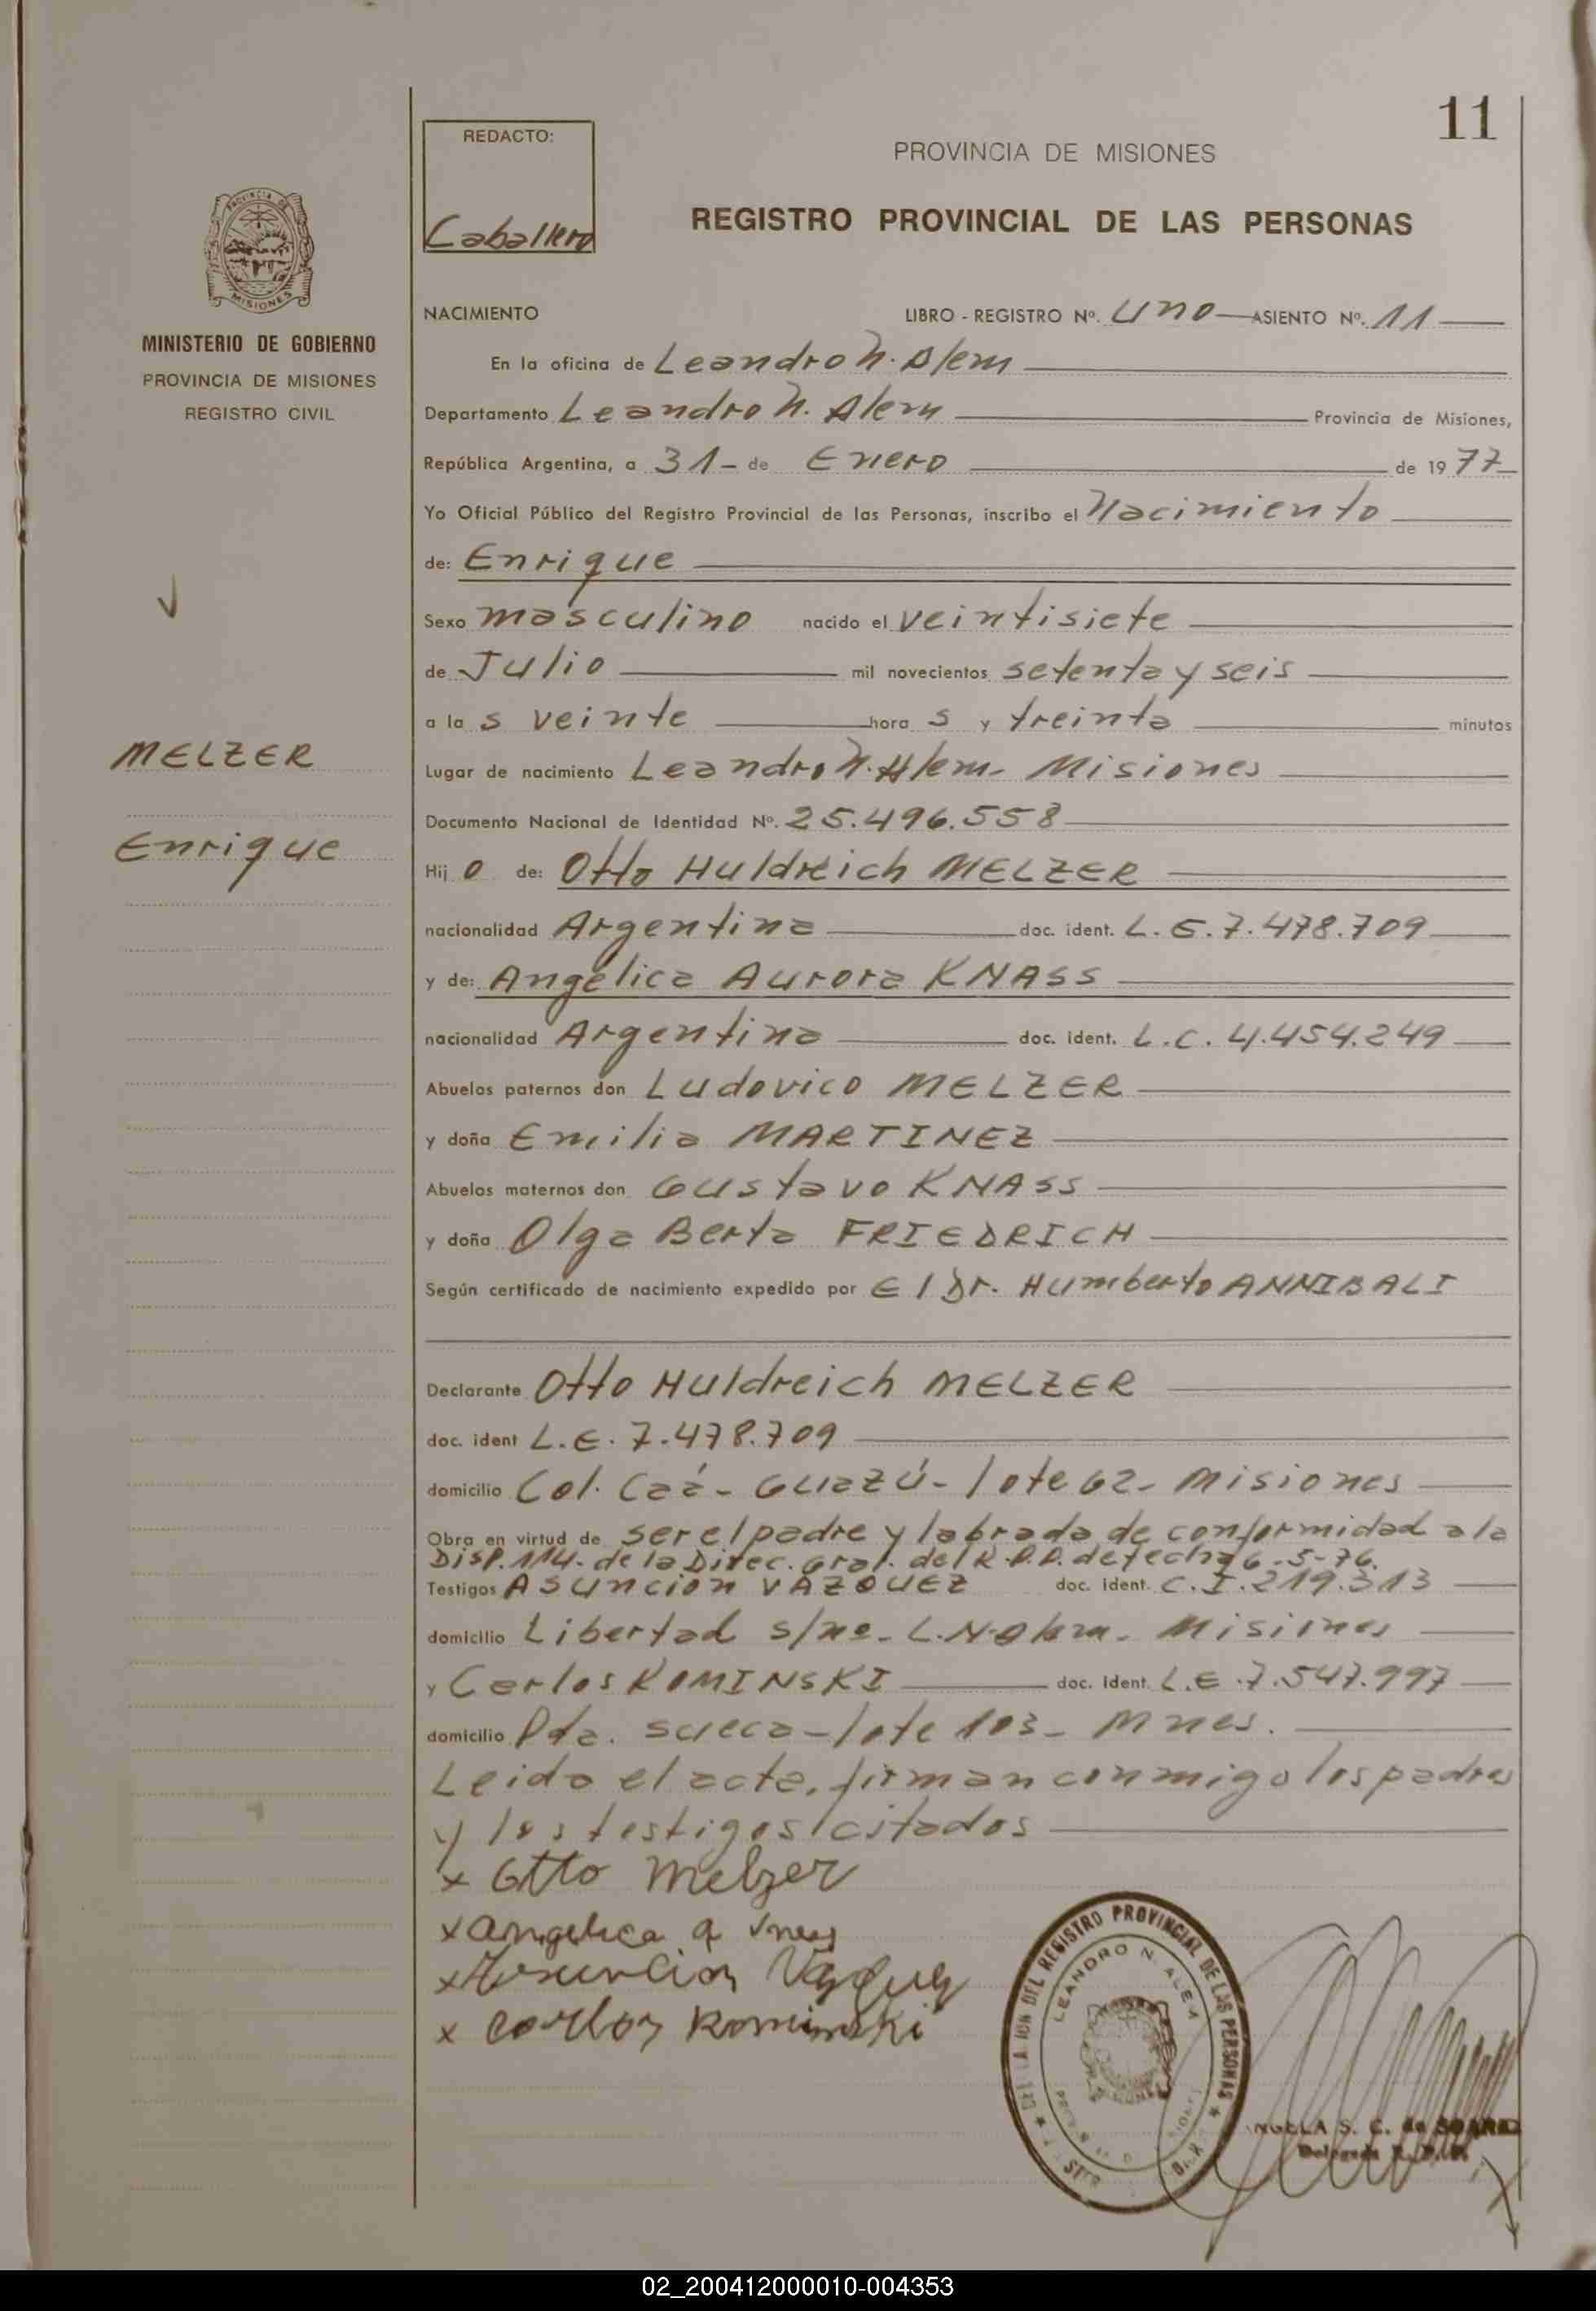 11
REDACTO:
Caballero
PROVINCIA DE MISIONES
REGISTRO PROVINCIAL DE LAS PERSONAS
PROVINCIA DE
MISIONES
MINISTERIO DE GOBIERNO
PROVINCIA DE MISIONES
REGISTRO CIVIL
MELZER
Enrique
NACIMIENTO LIBRO - REGISTRO Nº. Uno ASIENTO Nº. 11
En la oficina de Leandro N. Alem
Departamento Leandro N. Alem Provincia de Misiones,
República Argentina, a 31- de Enero de 1977
Yo Oficial Público del Registro Provincial de las Personas, inscribo el Nacimiento
de: Enrique
Sexo masculino nacido el veintisiete
de Julio mil novecientos setenta y seis
a las veinte horas y treinta minutos
Lugar de nacimiento Leandro N. Alem- Misiones
Documento Nacional de Identidad Nº. 25.496.558
Hijo de: Otto Huldreich MELZER
nacionalidad Argentina doc. ident. L.E. 7.478.709
y de: Angélica Aurora KNASS
nacionalidad Argentina doc. ident. L.C. 4.454.249
Abuelos paternos don Ludovico MELZER
y doña Emilia MARTINEZ
Abuelos maternos don Gustavo KNASS
y doña Olga Berta FRIEDRICH
Según certificado de nacimiento expedido por El Dr. Humberto ANNIBALI
Declarante Otto Huldreich MELZER
doc. ident L.E. 7.478.709
domicilio Col. Caá-Guazú- lote 62- Misiones
Obra en virtud de ser el padre y labrada de conformidad a la
Disp. 114- de la Direc. Gral. del R.P.P. de fecha 6-5-76.
Testigos Asunción VAZQUEZ doc. ident. C.I. 219.313
domicilio Libertad s/nº- L.N.Alem- Misiones
y Carlos KOMINSKI doc. ident. L.E. 7.547.997
domicilio Pda. Sueca-lote 103- Mnes.
Leida el acta, firman conmigo los padres
y los testigos citados
x Otto Melzer
x Angelica A
x Asuncion Vazquez
x Carlos Kominski
DEL REGISTRO PROVINCIAL DE LAS PERSONAS
LEANDRO N. ALEM
S. C. de
Delegada R. P. P.
02_200412000010-004353